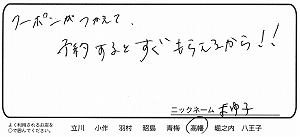 クーポンがつかえて、
予約するとすぐもらえるから!!
ニックネーム まゆ子
よく利用されるお店を
○で囲んでください。
立川 小作 羽村 昭島 青梅 高幡 堀之内 八王子